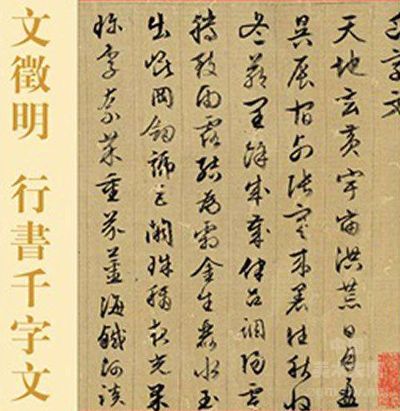 文徵明 行書千字文
千字文
天地玄黃宇宙洪荒日月盈
昃辰宿列張寒来暑往秋收
冬藏閏餘成歲律吕調陽雲
騰致雨露結為霜金生麗水玉
出崐岡劒號巨闕珠稱夜光果
珍李柰菜重芥薑海鹹河淡